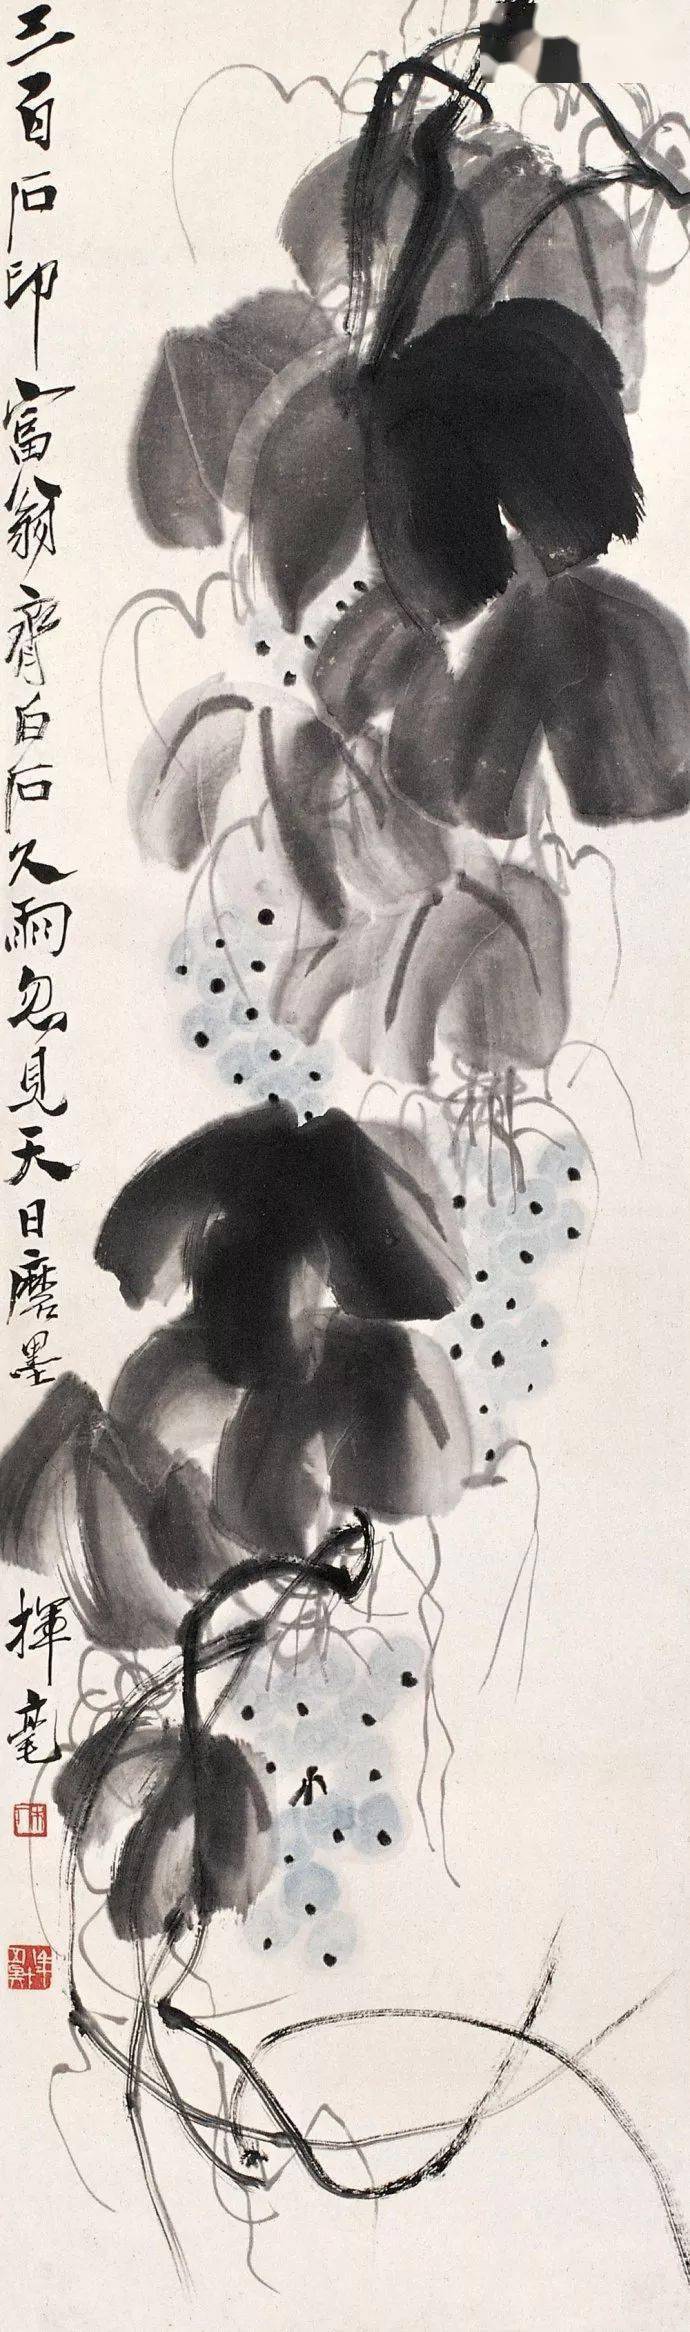 三百石印富翁齊白石久雨忽見天日磨墨揮毫